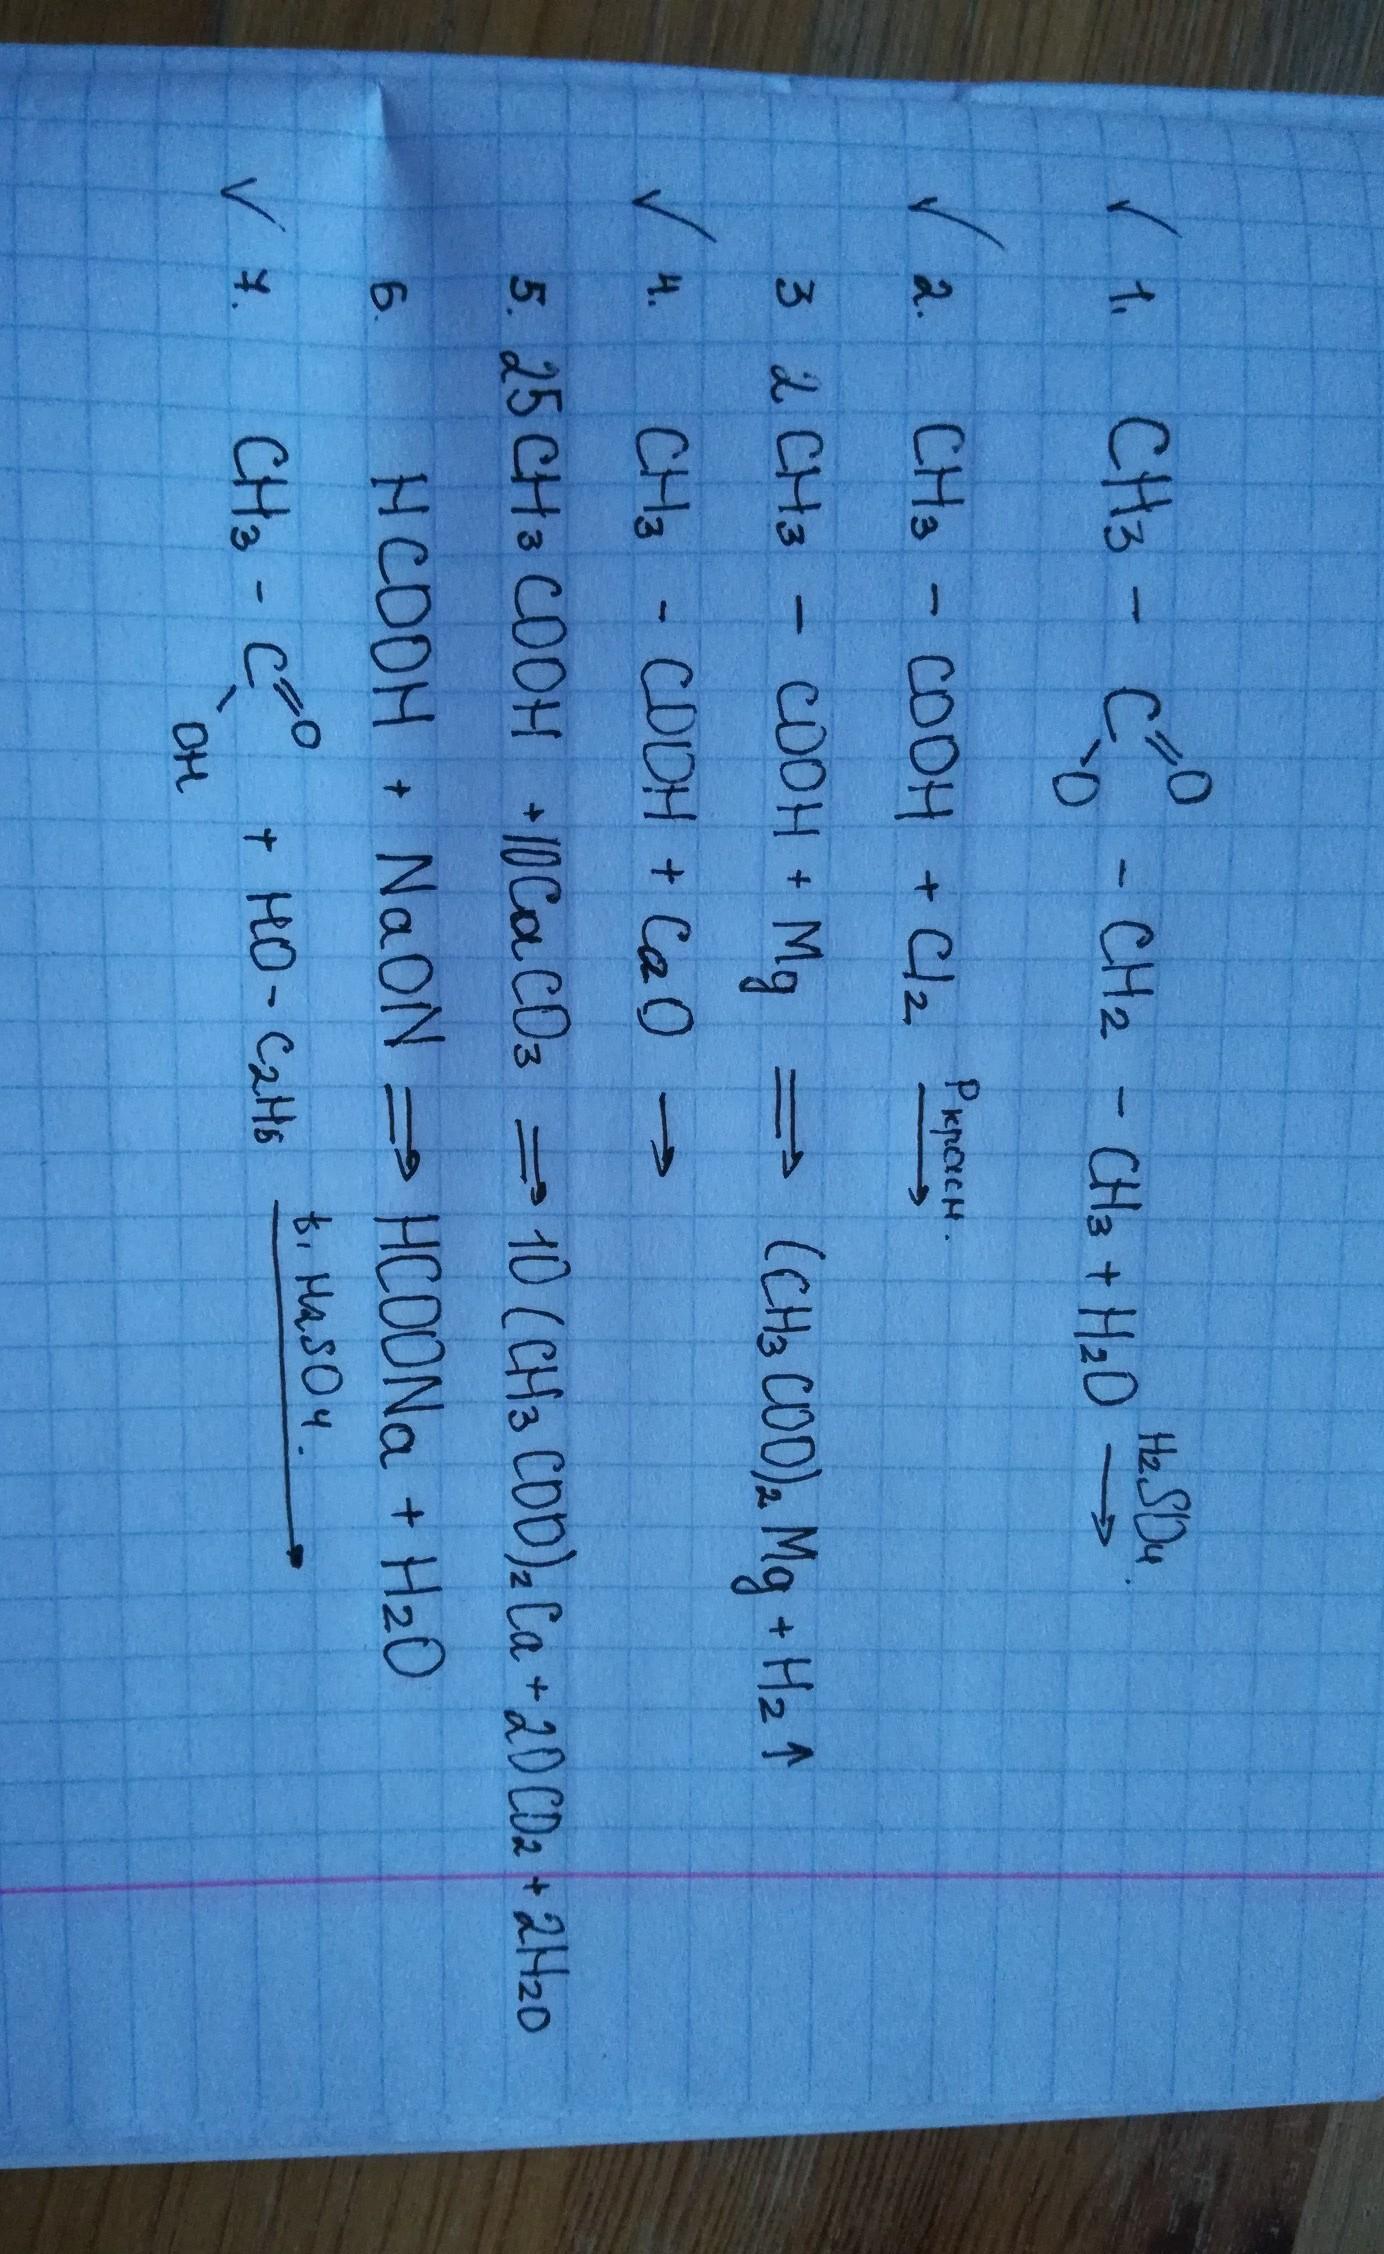 ✓ 1. CH3 - C(=O)(-O) - CH2 - CH3 + H2O →(H2SO4.)
✓ 2. CH3 - COOH + Cl2 →(Pкрасн.)
3 2CH3 - COOH + Mg ⇒ (CH3COO)2Mg + H2↑
✓ 4. CH3 - COOH + CaO →
5. 25CH3COOH + 10CaCO3 ⇒ 10(CH3COO)2Ca + 20CO2 + 2H2O
6. HCOOH + NaON ⇒ HCOONa + H2O
✓ 7. CH3 - C(=O)(-OH) + HO - C2H5 →(t, H2SO4.)